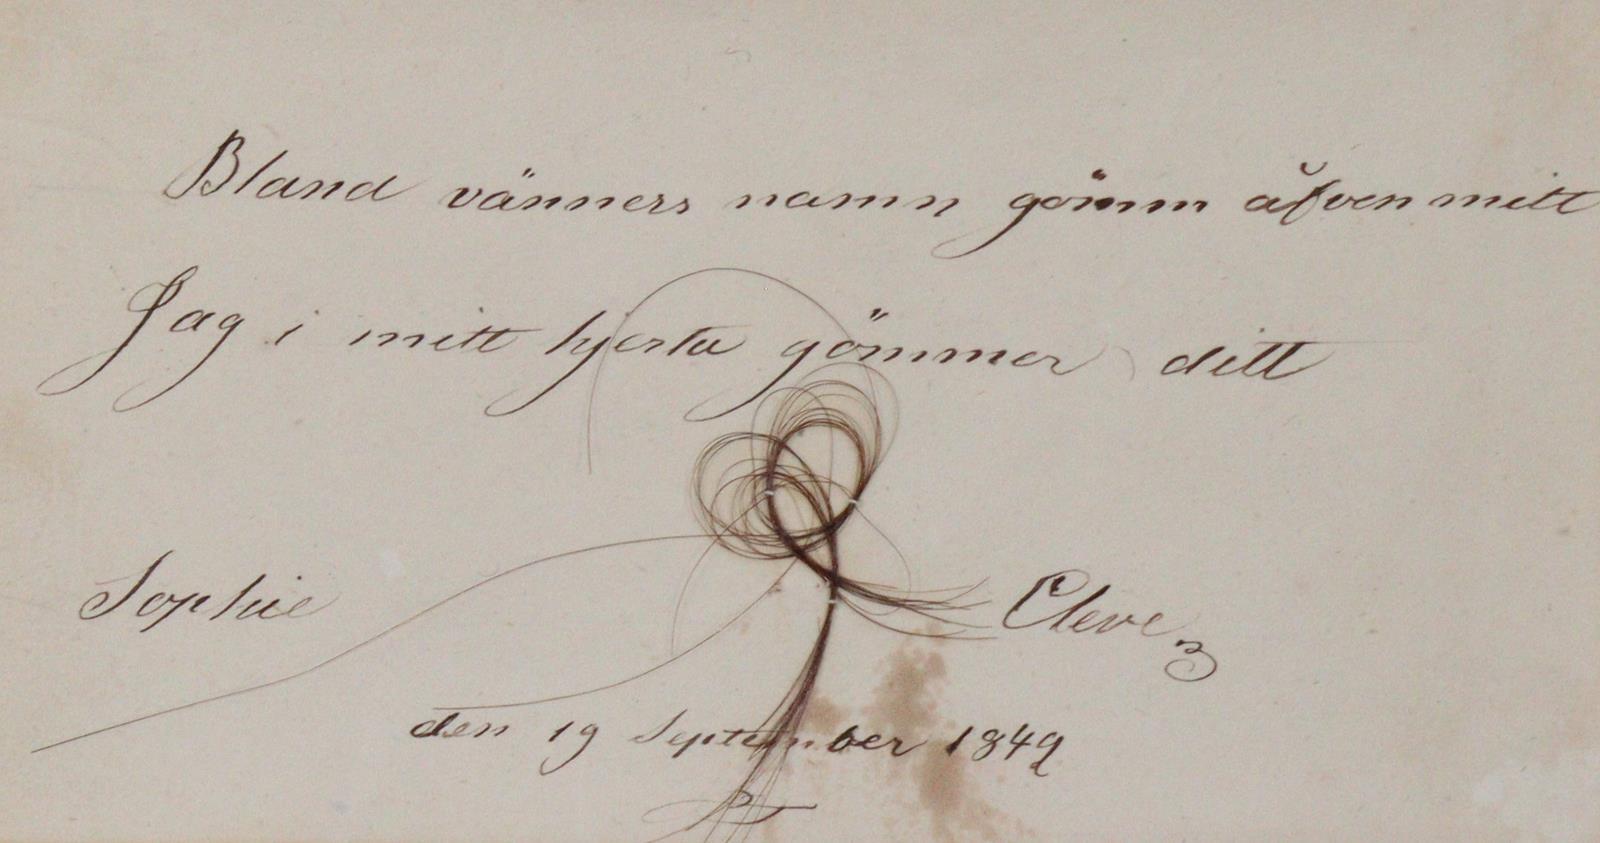 Bland vänners namn gömm äfven mitt
Jag i mitt hjerta gömmer ditt
Sophie Cleve
den 19 September 1849